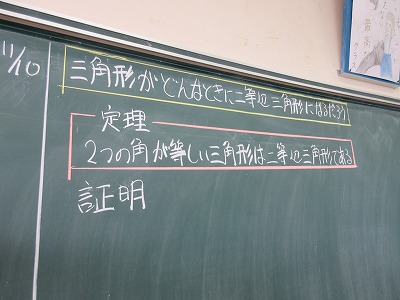 11/10
三角形がどんなときに二等辺三角形になるだろう
定理
2つの角が等しい三角形は二等辺三角形である
証明